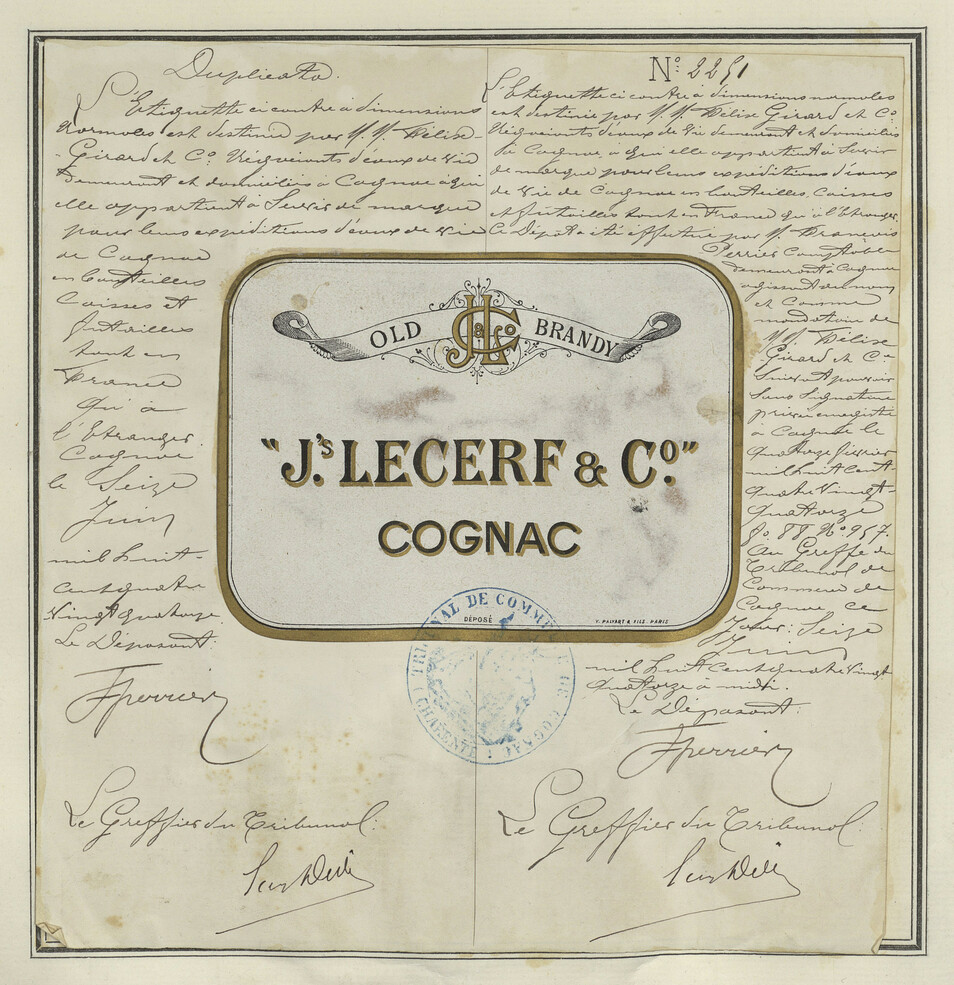 Duplicata.
L'Etiquette ci contre à dimensions
normales est destinée par M.M. Félix
Girard et Co. Négociants d'eaux de vie
demeurant et domiciliés à Cognac à qui
elle appartient à Servir de marque
pour leurs expéditions d'eaux de vie
de Cognac
en bouteilles
Caisses et
futailles
tant en
France
qu'à
l'Etranger.
Cognac
le Seize
Juin
mil huit
cent quatre
vingt quatorze
Le Déposant:
F Perrier
Le Greffier du Tribunal:
No. 2251
L'Etiquette ci contre à dimensions normales
est destinée par M.M. Félix Girard et Co.
Négociants d'eaux de vie demeurant et domiciliés
à Cognac, à qui elle appartient à Servir
de marque pour leurs expéditions d'eaux
de vie de Cognac en bouteilles, Caisses
et futailles tant en France qu'à l'Etranger.
Ce Dépôt a été effectué par M. François
Perrier Comptable
demeurant à Cognac
agissant au nom
et Comme
mandataire de
M.M. Félix
Girard et Co
Suivant pouvoir
Sous Signature
privée enregistré
à Cognac le
quatorze février
mil huit cent
quatre vingt
quatorze
fo. 88 No. 957.
Au Greffe du
Tribunal de
Commerce de
Cognac ce
Jour: Seize
Juin
mil huit cent quatre vingt
quatorze à midi.
Le Déposant:
F Perrier
Le Greffier du Tribunal:
OLD JHL & Co BRANDY
"J.s LECERF & Co."
COGNAC
DÉPOSÉ
PARIS
TRIBUNAL DE COMMERCE DE COGNAC
(CHARENTE)